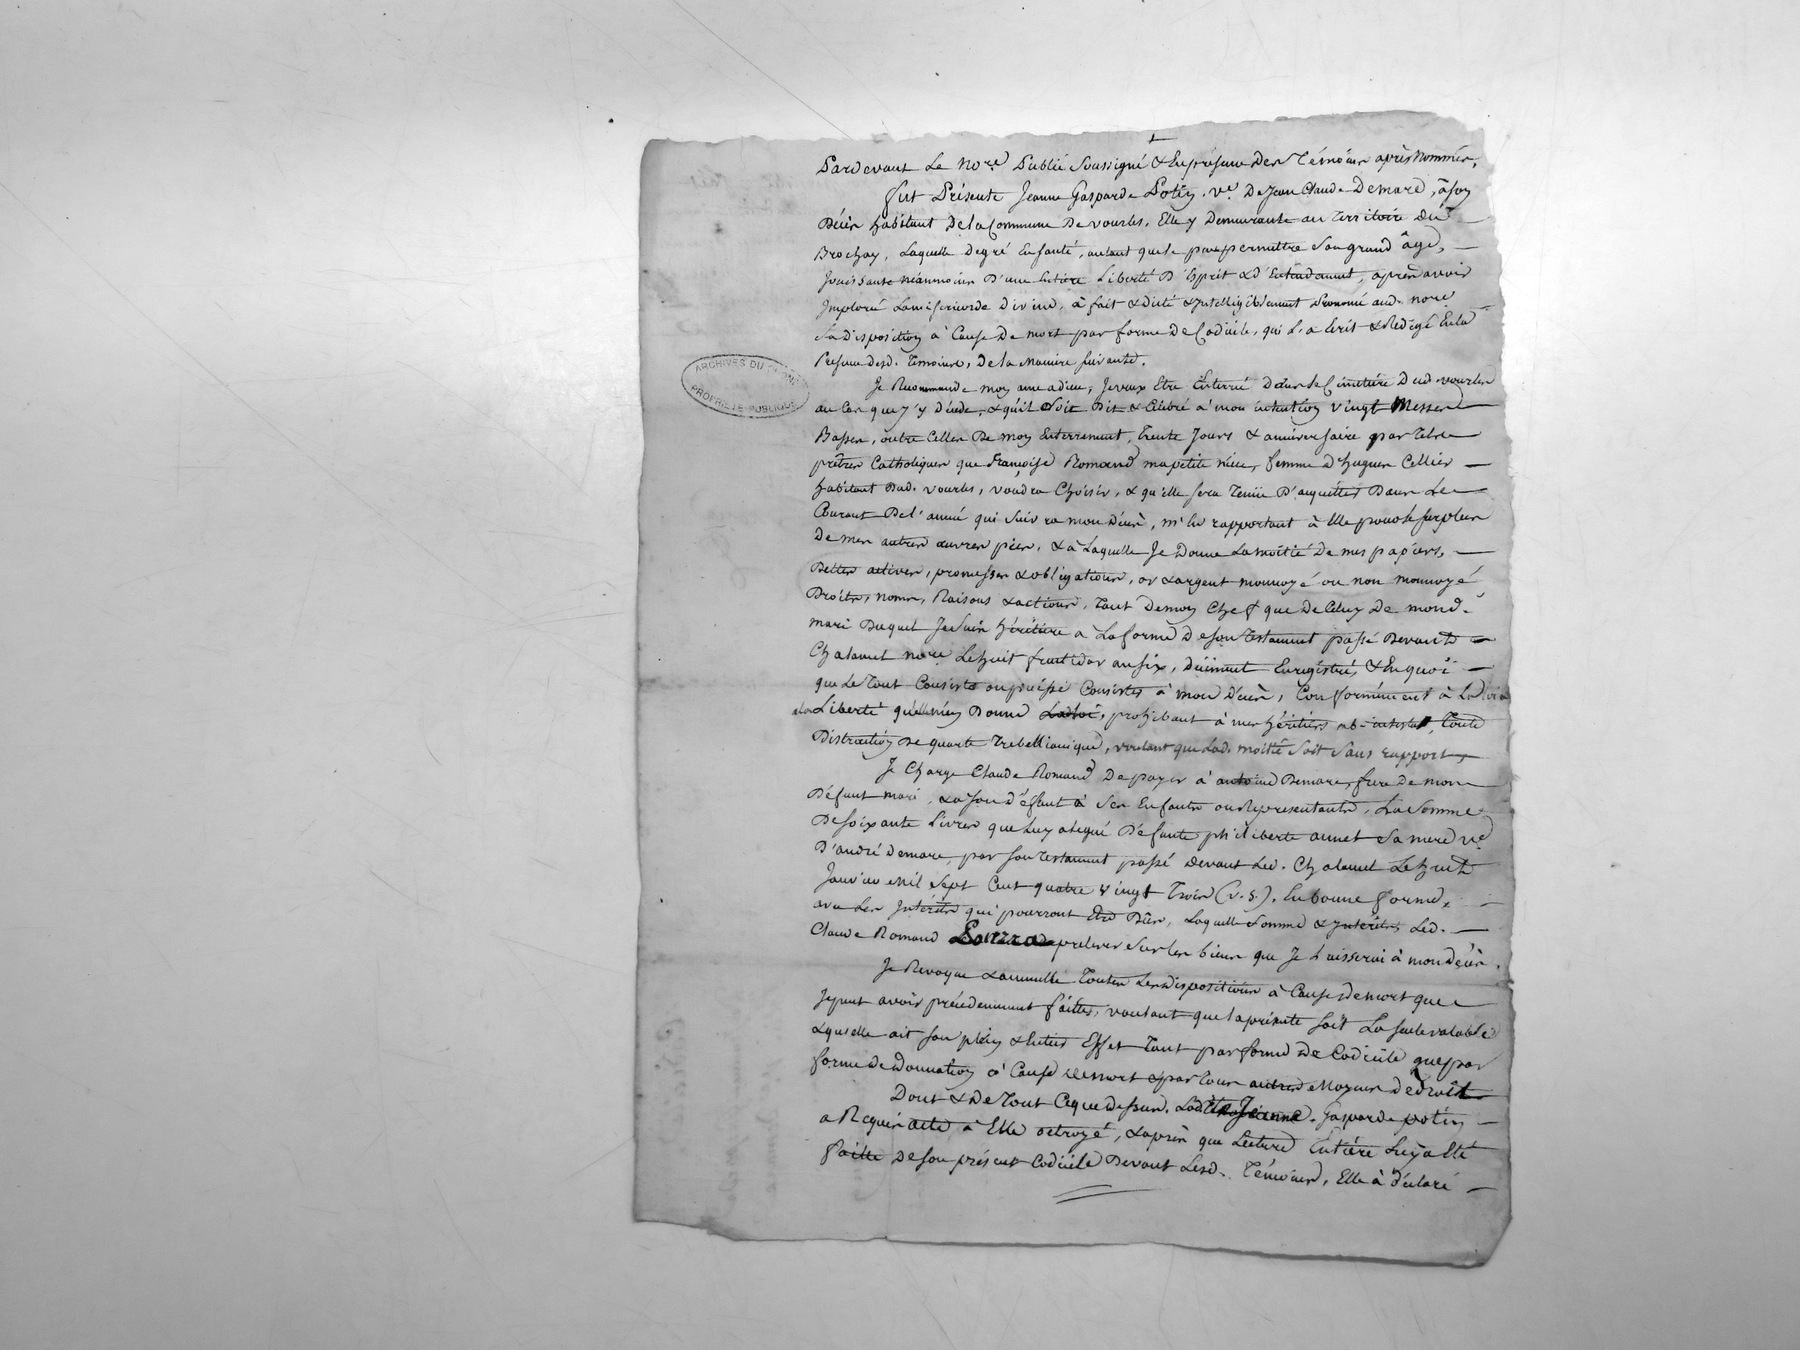 Pardevant Le No.re Public Soussigné & En présence des Témoins après Nommés,
fut Présente Jeanne Gasparde Potin, v.e De Jean Claude Demare, à son
Décès habitant De la Commune De vourles, Elle y Demeurante au Territoire Du
Brochay, Laquelle de gré En santé, autant que le peu permettre Son grand âge,
Jouissante néanmoins D'une Entière Liberté D'Esprit & d'Entendement, après avoir
Imploré La miséricorde Divine, à fait & dicté & Intelligiblement Prononcé aud. no.re
Sa disposition à Cause De mort par forme De Codicile, qui L'a Ecrit & Redigé En la
Presence desd. Témoins, De la Maniere suivante.
ARCHIVES DU RHÔNE
PROPRIÉTÉ PUBLIQUE
Je Recommande mon ame a dieu, Je veux Etre Enterré Dans le Cimetiére Dud. vourles
au Cas que j'y décede, & qu'il Soit Dit & Célébré à mon intention vingt Messes
Basses, outre Celles De mon Enterrement, Trente Jours & anniversaire par Tels
prêtres Catholiques que Françoise Romand ma petite niéce, femme d'hugues Cellier
habitant Dud. vourles, voudra Choisir, & qu'elle sera Tenüe D'acquitter Dans Le
Courant De l'année qui Suivra mon Décès, m'En rapportant à Elle pour le surplus
De mes autres œuvres pies, & à Laquelle Je Donne La moitié De mes papiers,
Dettes actives, promesses & obligations, or & argent monnoyé ou non monnoyé
Droits, noms, Raisons & actions, Tant De mon Chef que De Celuy De mond.
mari Duquel Je Suis héritière a La forme De son Testament passé Devant
Chalamel no.re Le huit fructidor an six, Dûement Enregistré, & En quoi
que Le Tout Consiste ou puisse Consister à mon Décès, Conformément à La loi &
à la Liberté qu'elle m'en Donne, prohibant à mes héritiers ab-intestat, Toute
Distraction De quarte Trebellianique, voulant que Lad. moitié Soit Sans rapport,
Je Charge Claude Romand De payer à antoine Demare, frere De mon
Défunt mari, & a son défaut à Ses Enfants ou Représentants, La Somme
De Soixante Livres que Luy a legué Défunte philiberte annet Sa mere v.e
D'andré Demare, par son Testament passé Devant Led. Chalamel Le huit
Janvier Mil Sept Cent quatre vingt Trois (v. s.), En bonne forme,
avec Les Intérêts qui pourront Etre Dûs, Laquelle Somme & Intérêts, Led.
Claude Romand prelever Sur les biens que Je Laisserai à mon décès.
Je Revoque & annulle Toutes Les dispositions à Cause de mort que
Je peut avoir précedemment faittes, voulant que la présente soit La seule valable
& qu'elle ait son plein & Entier Effet Tant par forme De Codicile que par
forme de Donnation à Cause De mort & par Tous autres Moyens de droit.
Dont & De Tout Ce que Dessus, Ladite Jeanne Gasparde potin
a Requis acte à Elle octroyé, & après que Lecture Entiére Luy a Eté
faitte De son présent Codicile Devant Lesd. Témoins, Elle à déclaré